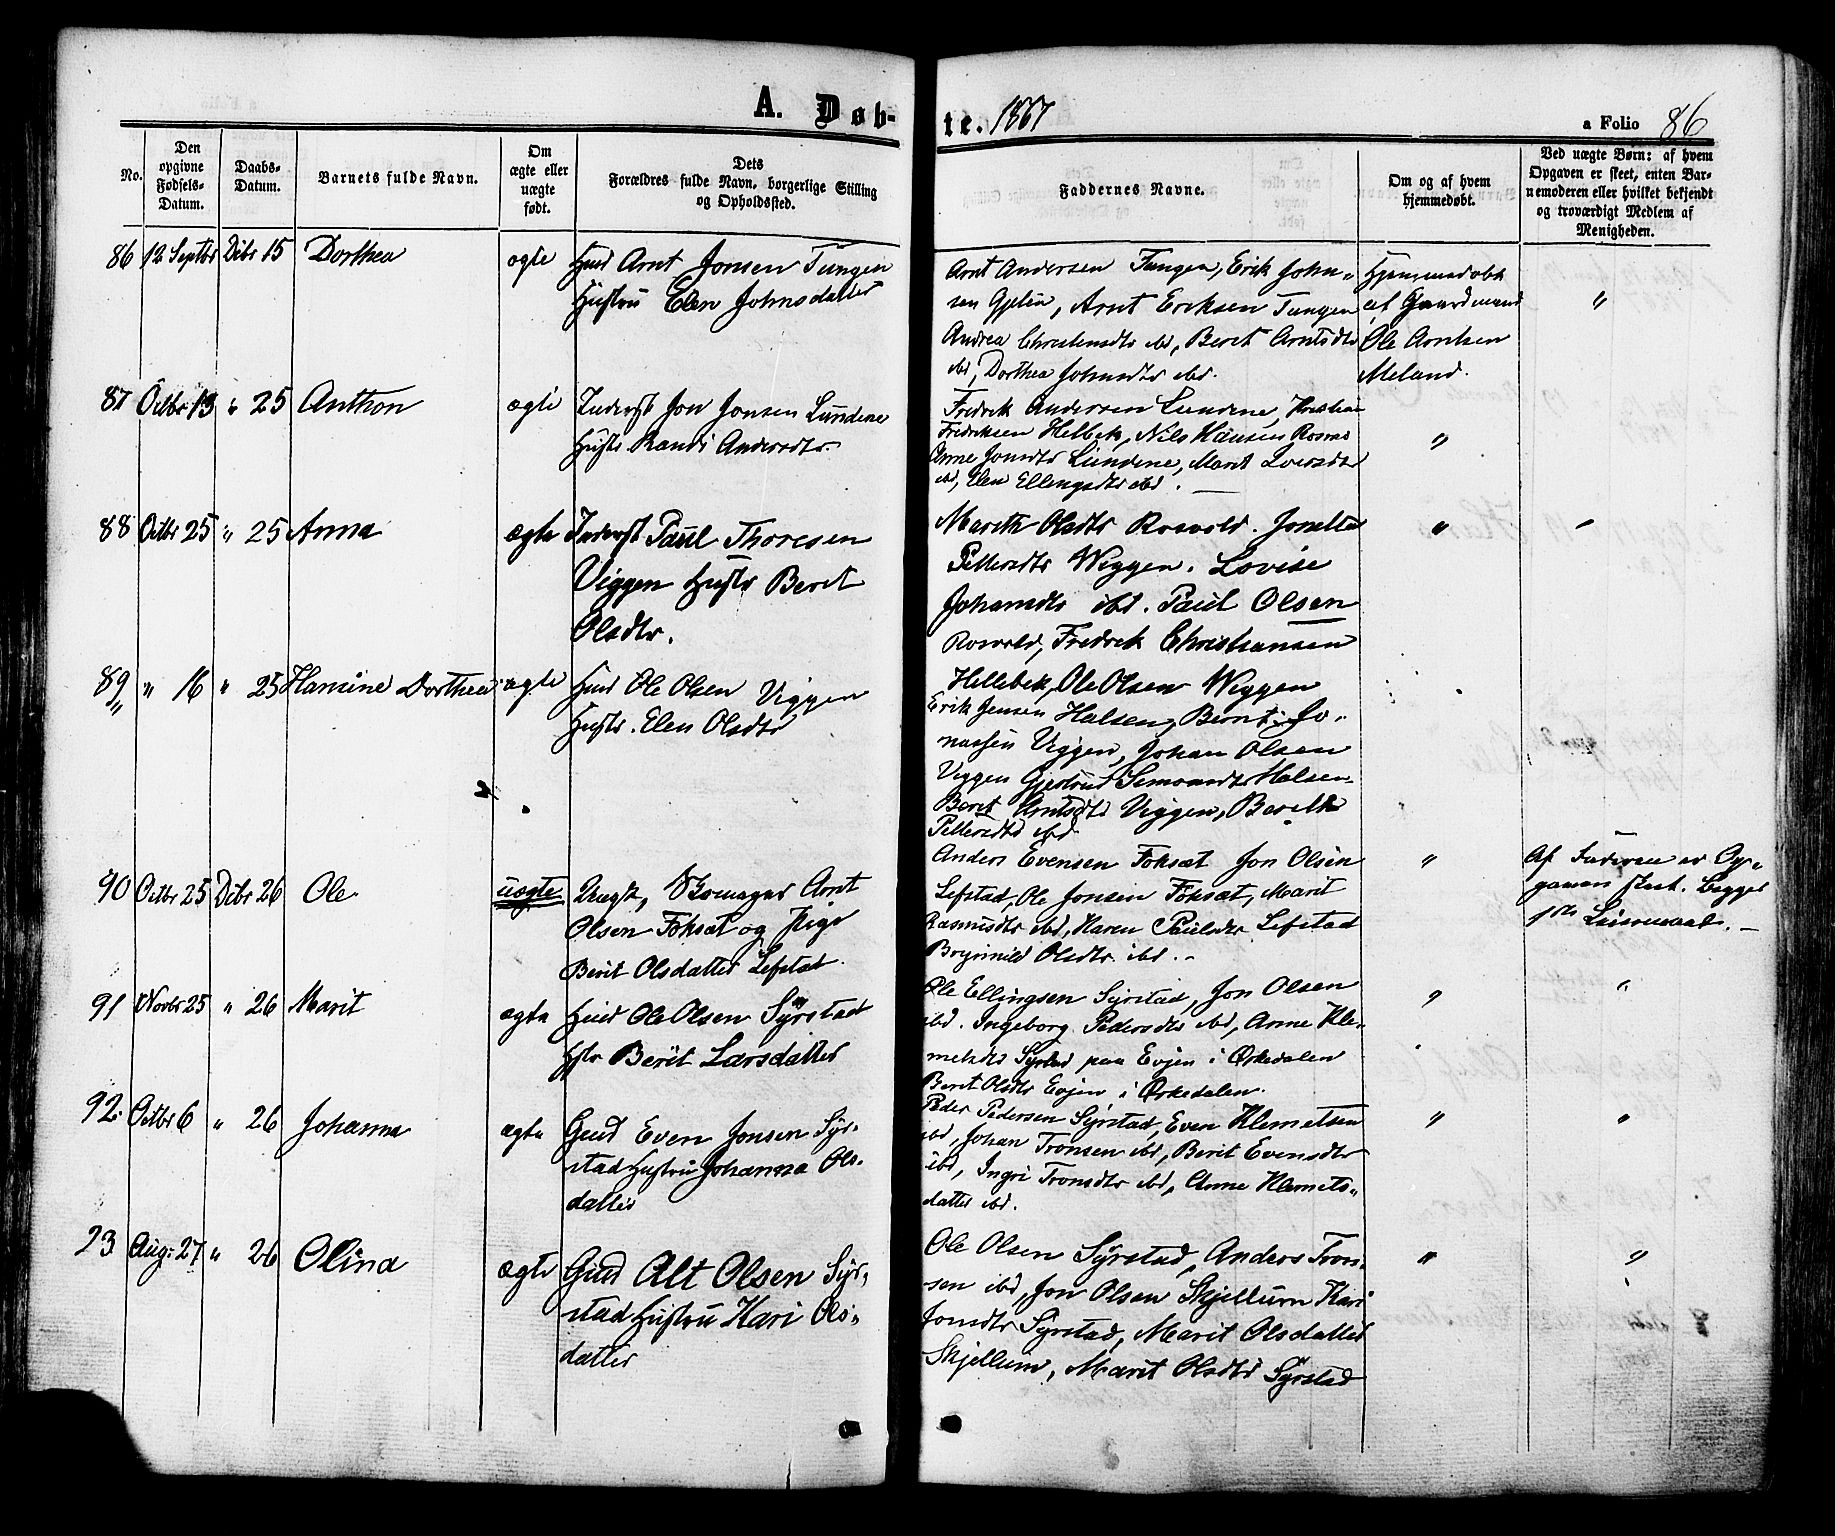 A. Døb-
te. 1867
a Folio 86
No.
Den opgivne Fødsels-Datum.
Daabs-Datum.
Barnets fulde Navn.
Om ægte eller uægte født.
Dets Forældres fulde Navn, borgerlige Stilling og Opholdssted.
Faddernes Navne.
Om og af hvem hjemmedøbt.
Ved uægte Børn: af hvem Opgaven er skeet, enten Barnemoderen eller hvilket bekjendt og troværdigt Medlem af Menigheden.
86 12 Septbr Dcbr 15 Dorthea ægte Arnt Jonsen Tungen
Hustru Elen Johnsdatter
Arnt Andersen Tungen, Erik John-
sen Gjelin, Arnt Eriksen Tungen
Andrea Christensdtr ibd, Beret Arntsdtr
ibd, Dorthea Johnsdtr ibd.
Hjemmedøbt
af Gaardmand
Ole Arntsen
Meland.
"
87 Octbr 13 " 25 Anthon ægte Inderst Jon Jonsen Lundene
Hustr Randi Andersdtr.
Fredrik Andersen Lundene,
Fredriksen Helbek, Nils Hansen Rosvo
Anne Jonsdtr Lundene, Marit
ibd, Elen Ellingsdtr ibd.
"
88 Octbr 25 " 25 Anna ægte Inderst Paul Thoresen
Viggen Hustr Beret
Olsdtr.
Mareth Olsdtr Rosvold. Jonetta
Pettersdtr Wiggen. Lovise
Johansdtr ibd. Paul Olsen
Rosvold, Fredrik Christiansen
Hellebek, Ole Olsen Wiggen
"
89 " 16 " 25 Hansine Dorthea ægte Ole Olsen Viggen
Hustr. Elen Olsdtr
Erik Jensen Halsen, Bernt Jo-
nassen Viggen, Johan Olsen
Viggen Gjertrud Halsen
Beret Arntsdtr Viggen, Bereth
Pettersdtr ibd
90 Octbr 25 Dcbr 26 Ole uægte Ungk, Arnt
Olsen Foksæt og Pige
Berit Olsdatter Lefstad.
Anders Evensen Foksæt Jon Olsen
Lefstad, Ole Jonsen Foksæt, Marit
Rasmusdtr ibd, Karen Paulsdtr Lefstad
Olsdtr. ibd. -
"
Af Faderen er Op-
gaven skeet. Begges
1ste Leiermaal. -
91 Novbr 25 " 26 Marit ægte Ole Olsen Syrstad
Hstr Berit Larsdatter
Ole Ellingsen Syrstad, Jon Olsen
ibd. Ingeborg Pedersdtr ibd, Anne Kle-
metsdtr Syrstad paa Evjen i Ørkedalen
Beret Olsdtr Evjen i Ørkedalen.
"
92. Octbr 6 " 26 Johanna ægte Even Jonsen Syr-
stad Hustru Johanna Ols-
datter
Peder Pedersen Syrstad, Even Klemetsen
ibd, Johan Tronsen ibd, Berit Evensdtr
ibd, Ingri Tronsdtr ibd, Anne Klemets-
datter ibd.
"
93 Aug: 27 " 26 Olina ægte Alt Olsen Syr-
stad Hustru Kari Ols-
datter
Ole Olsen Syrstad, Anders Tron-
sen ibd, Jon Olsen Skjellum Kari
Jonsdtr Syrstad, Marit Olsdatter
Skjellum, Marit Olsdtr Syrstad
"